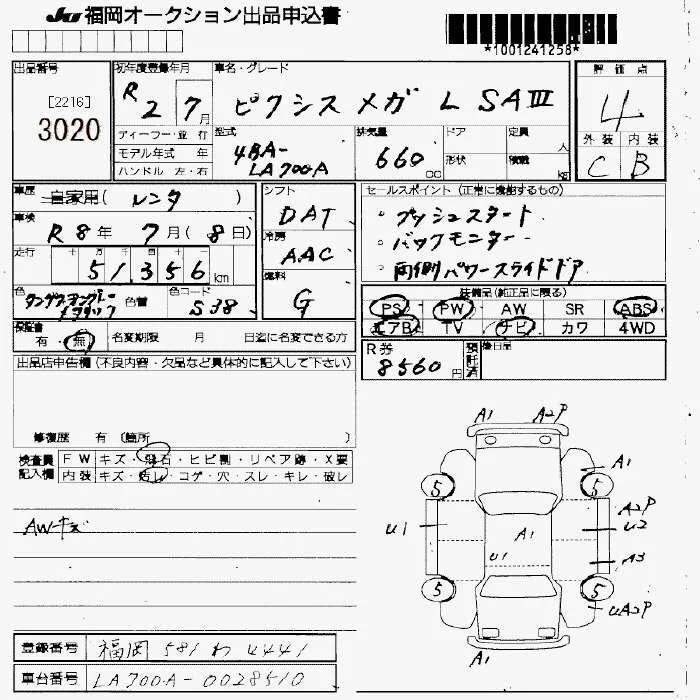 JU 福岡オークション出品申込書
*1001241258*
出品番号
[2216]
3020
初年度登録年月
R 2 7月
車名・グレード
ピクシスメガ L SAⅢ
評価点
4
外装 内装
C B
ディーラー・並行
モデル年式 年
ハンドル 左・右
型式
4BA-
LA700A
排気量
660 cc
ドア
形状
定員 人
積載 kg
車歴
自家用( レンタ )
車検
R 8年 7月( 8日)
走行 十 万 千 百 十
51,356 km
色
色替
色コード
S38
シフト
DAT
冷房
AAC
燃料
G
セールスポイント(正常に機能するもの)
・プッシュスタート
・バックモニター
・両側パワースライドドア
装備品(純正品に限る)
PS PW AW SR ABS
エアB TV ナビ カワ 4WD
保証書
有・無
名変期限 月 日迄に名変できる方
R券
8560円
預託済
後日品
出品店申告欄(不良内容・欠品など具体的に記入して下さい)
修復歴 有 〔箇所 〕
検査員
記入欄
FW キズ・飛石・ヒビ割・リペア跡・X要
内装 キズ・汚れ・コゲ・穴・スレ・キレ・破レ
AWキズ
A1 A2P
A1
5 5
A2P
U1
U2
A1
U1
A3
5 5
UA2P
A1
登録番号 福岡 581 わ 4441
車台番号 LA700A-0028510